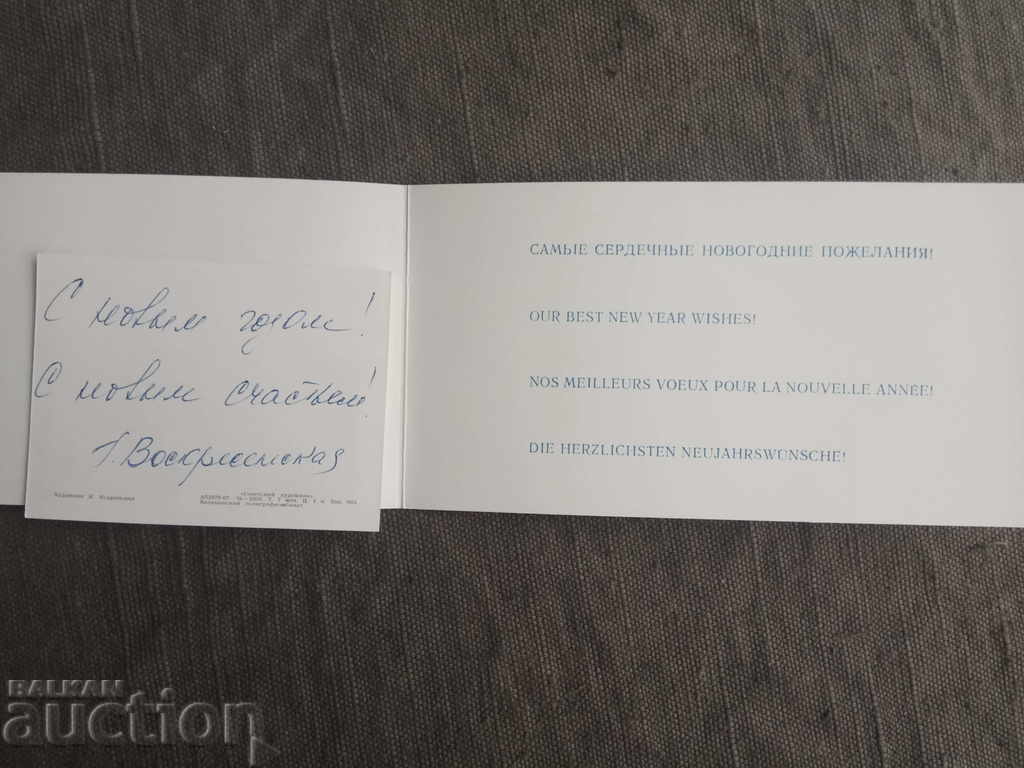 С новым годом!
С новым счастьем!
Воскресенская
Художник
«Советский художник»
САМЫЕ СЕРДЕЧНЫЕ НОВОГОДНИЕ ПОЖЕЛАНИЯ!
OUR BEST NEW YEAR WISHES!
NOS MEILLEURS VOEUX POUR LA NOUVELLE ANNÉE!
DIE HERZLICHSTEN NEUJAHRSWÜNSCHE!
BALKAN
auction